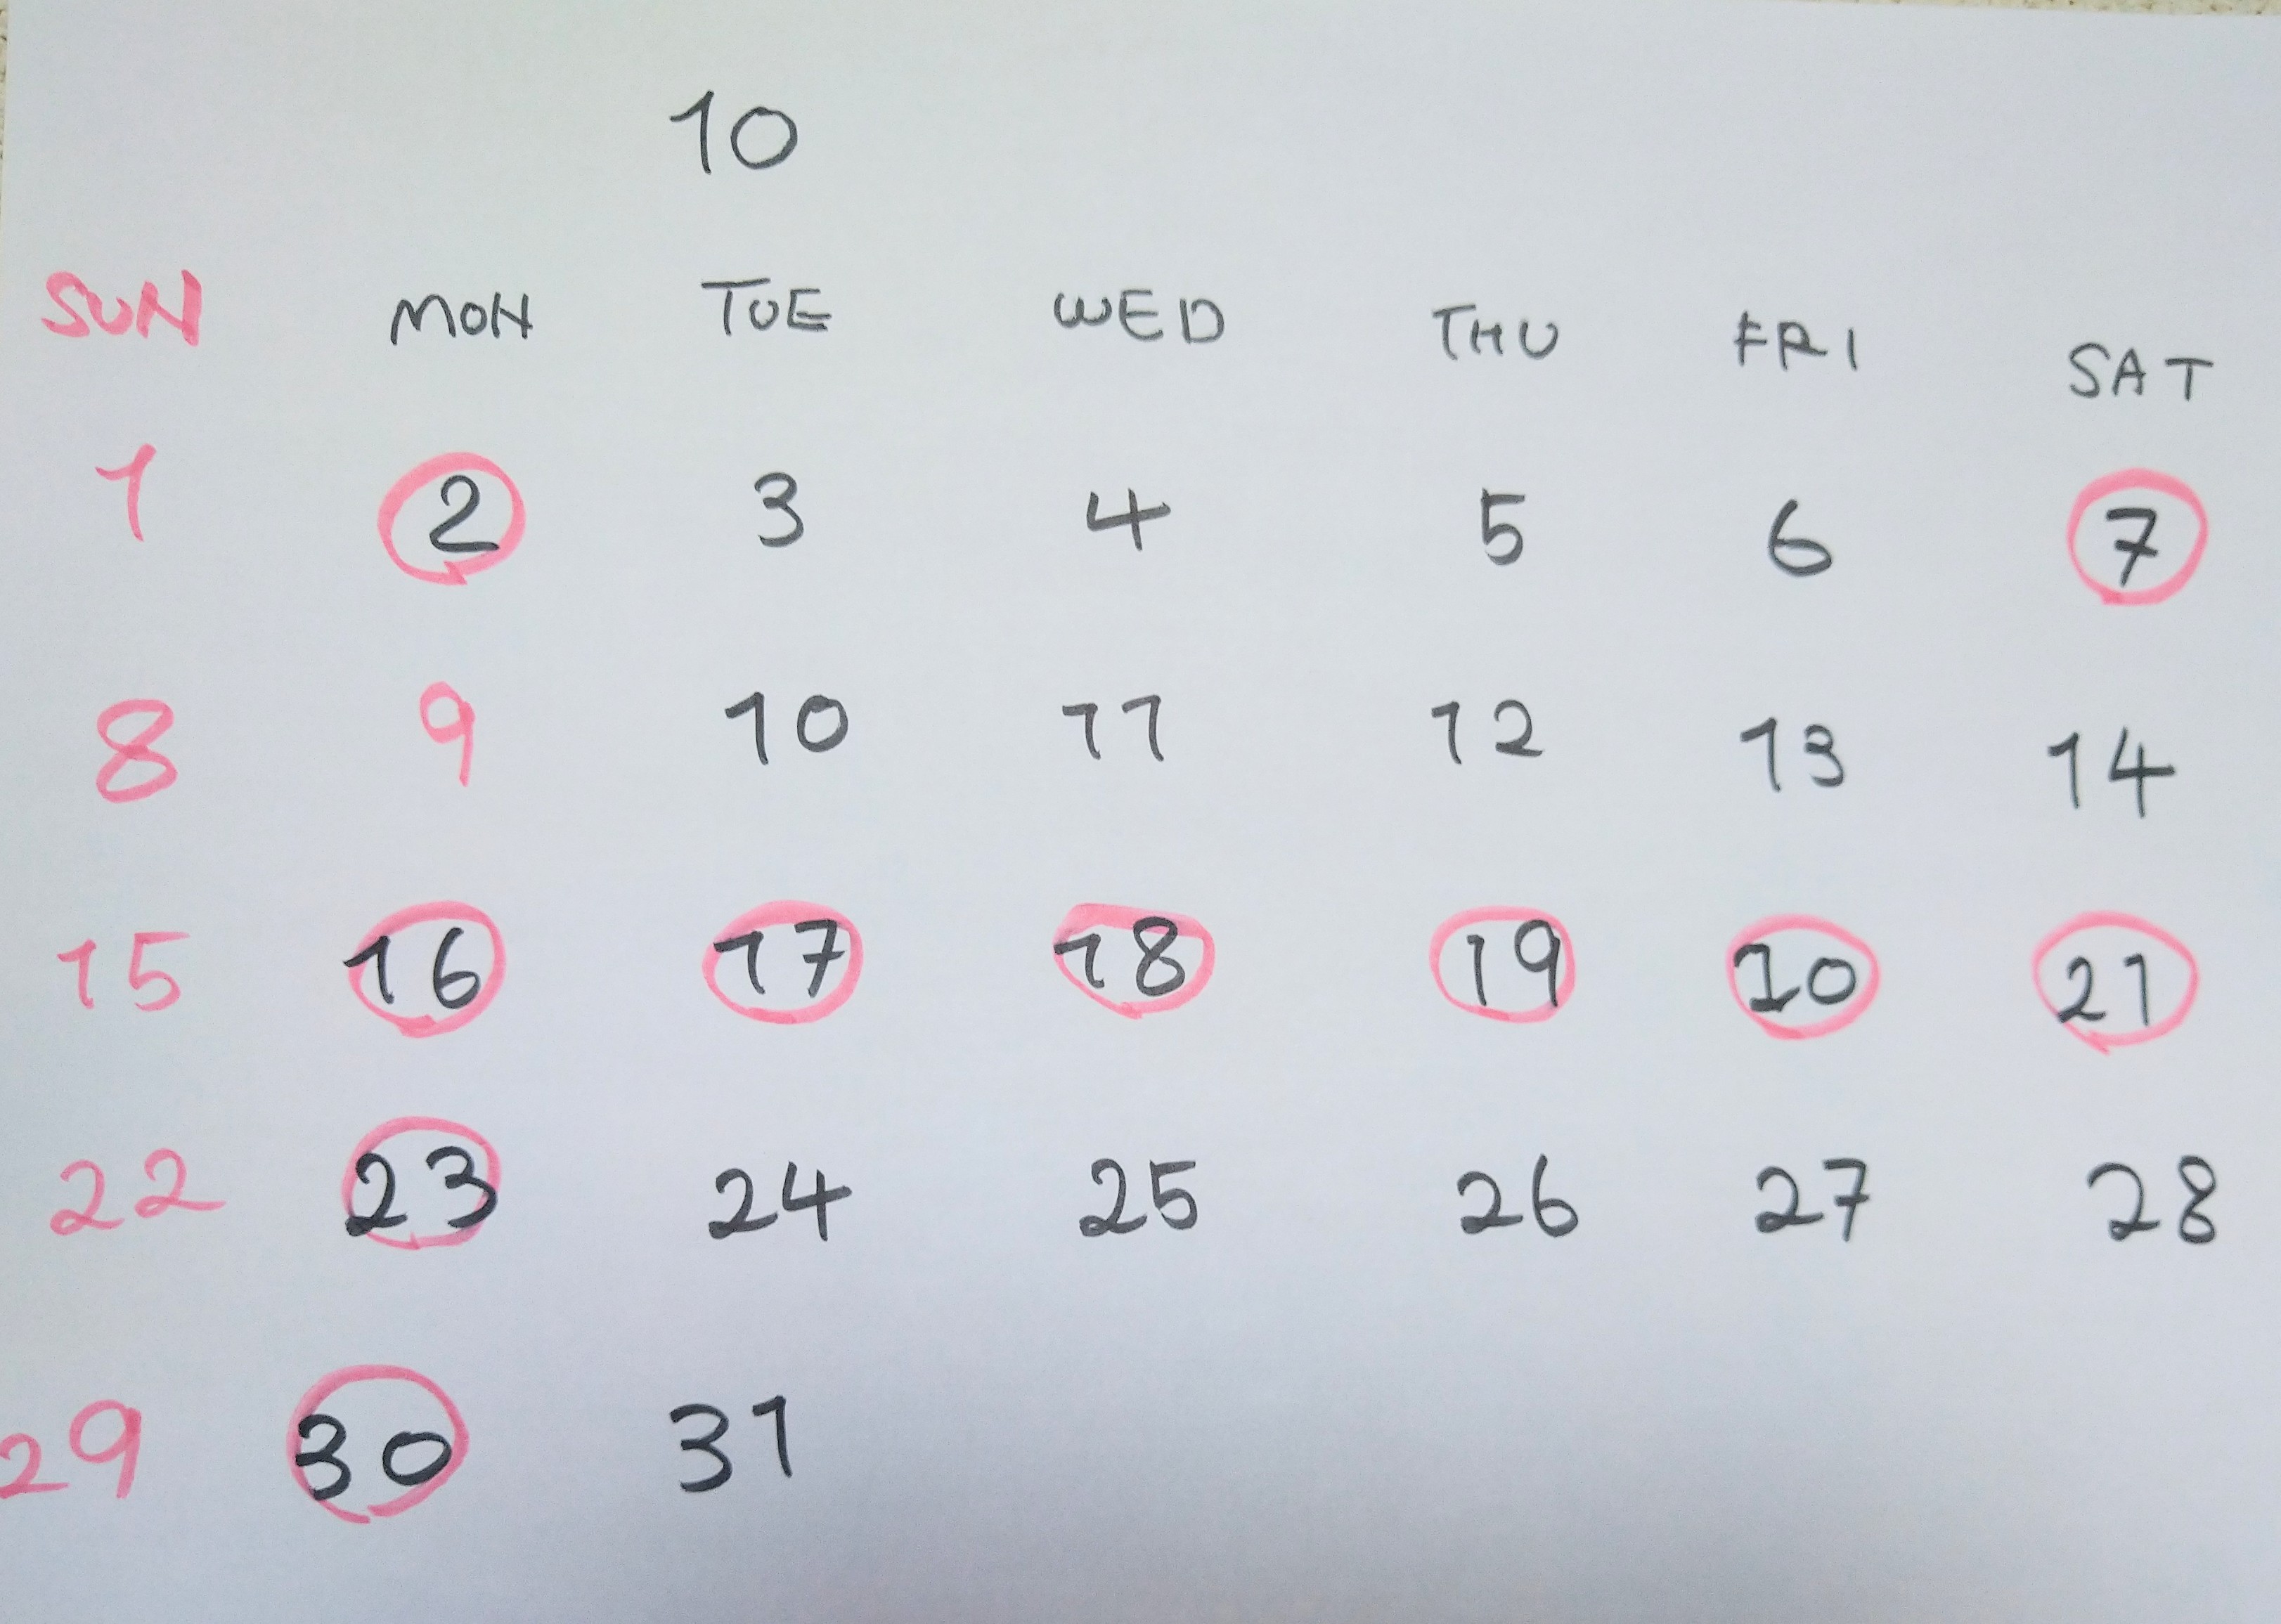 10
SUN MON TUE WED THU FRI SAT
1 2 3 4 5 6 7
8 9 10 11 12 13 14
15 16 17 18 19 10 21
22 23 24 25 26 27 28
29 30 31